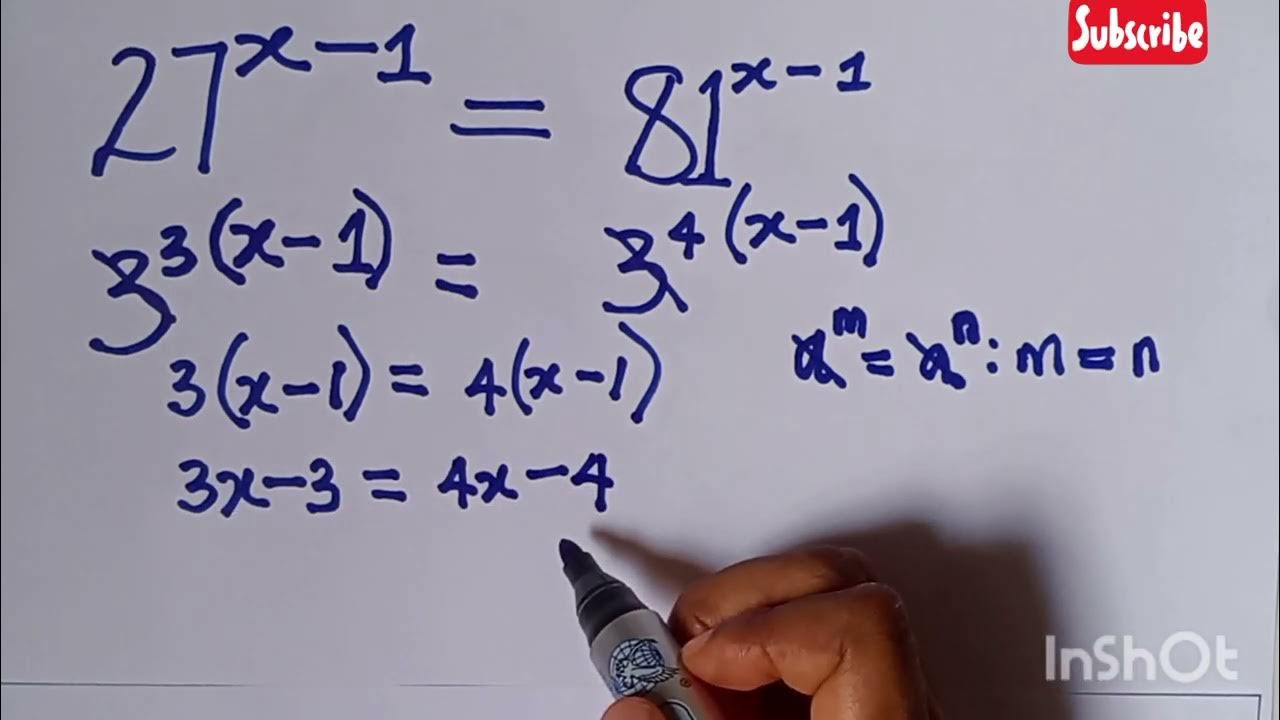 Subscribe
27^{x-1} = 81^{x-1}
3^{3(x-1)} = 3^{4(x-1)}
x^m = x^n : m = n
3(x-1) = 4(x-1)
3x-3 = 4x-4
InShOt